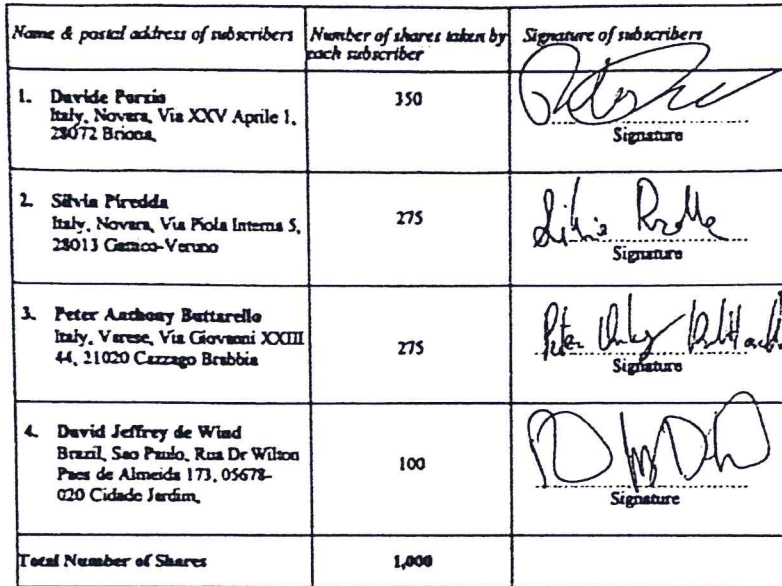 Name & postal address of subscribers
Number of shares taken by
each subscriber
Signature of subscribers
1. Davide Parzis
Italy, Novara, Via XXV Aprile 1,
28072 Briona,
350
Signature
2. Silvia Piredda
Italy, Novara, Via Piola Interna 5,
28013 Gattico-Veruno
275
Silvia
Signature
3. Peter Anthony Buttarello
Italy, Varese, Via Giovanni XXIII
44, 21020 Cazzago Brabbia
275
Peter
Signature
4. David Jeffrey de Wind
Brazil, Sao Paulo, Rua Dr Wilton
Paes de Almeida 173, 05678-
020 Cidade Jardim,
100
Signature
Total Number of Shares
1,000